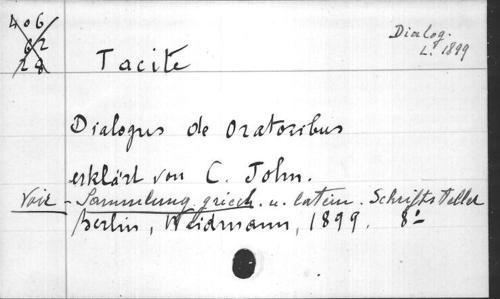 406
62
28
Dialog.
L. 8 1899
Tacite
Dialogus de Oratoribus
erklärt von C. John.
Voir - Sammlung griech. u. latein. Schriftsteller
Berlin, Weidmann, 1899. 8º